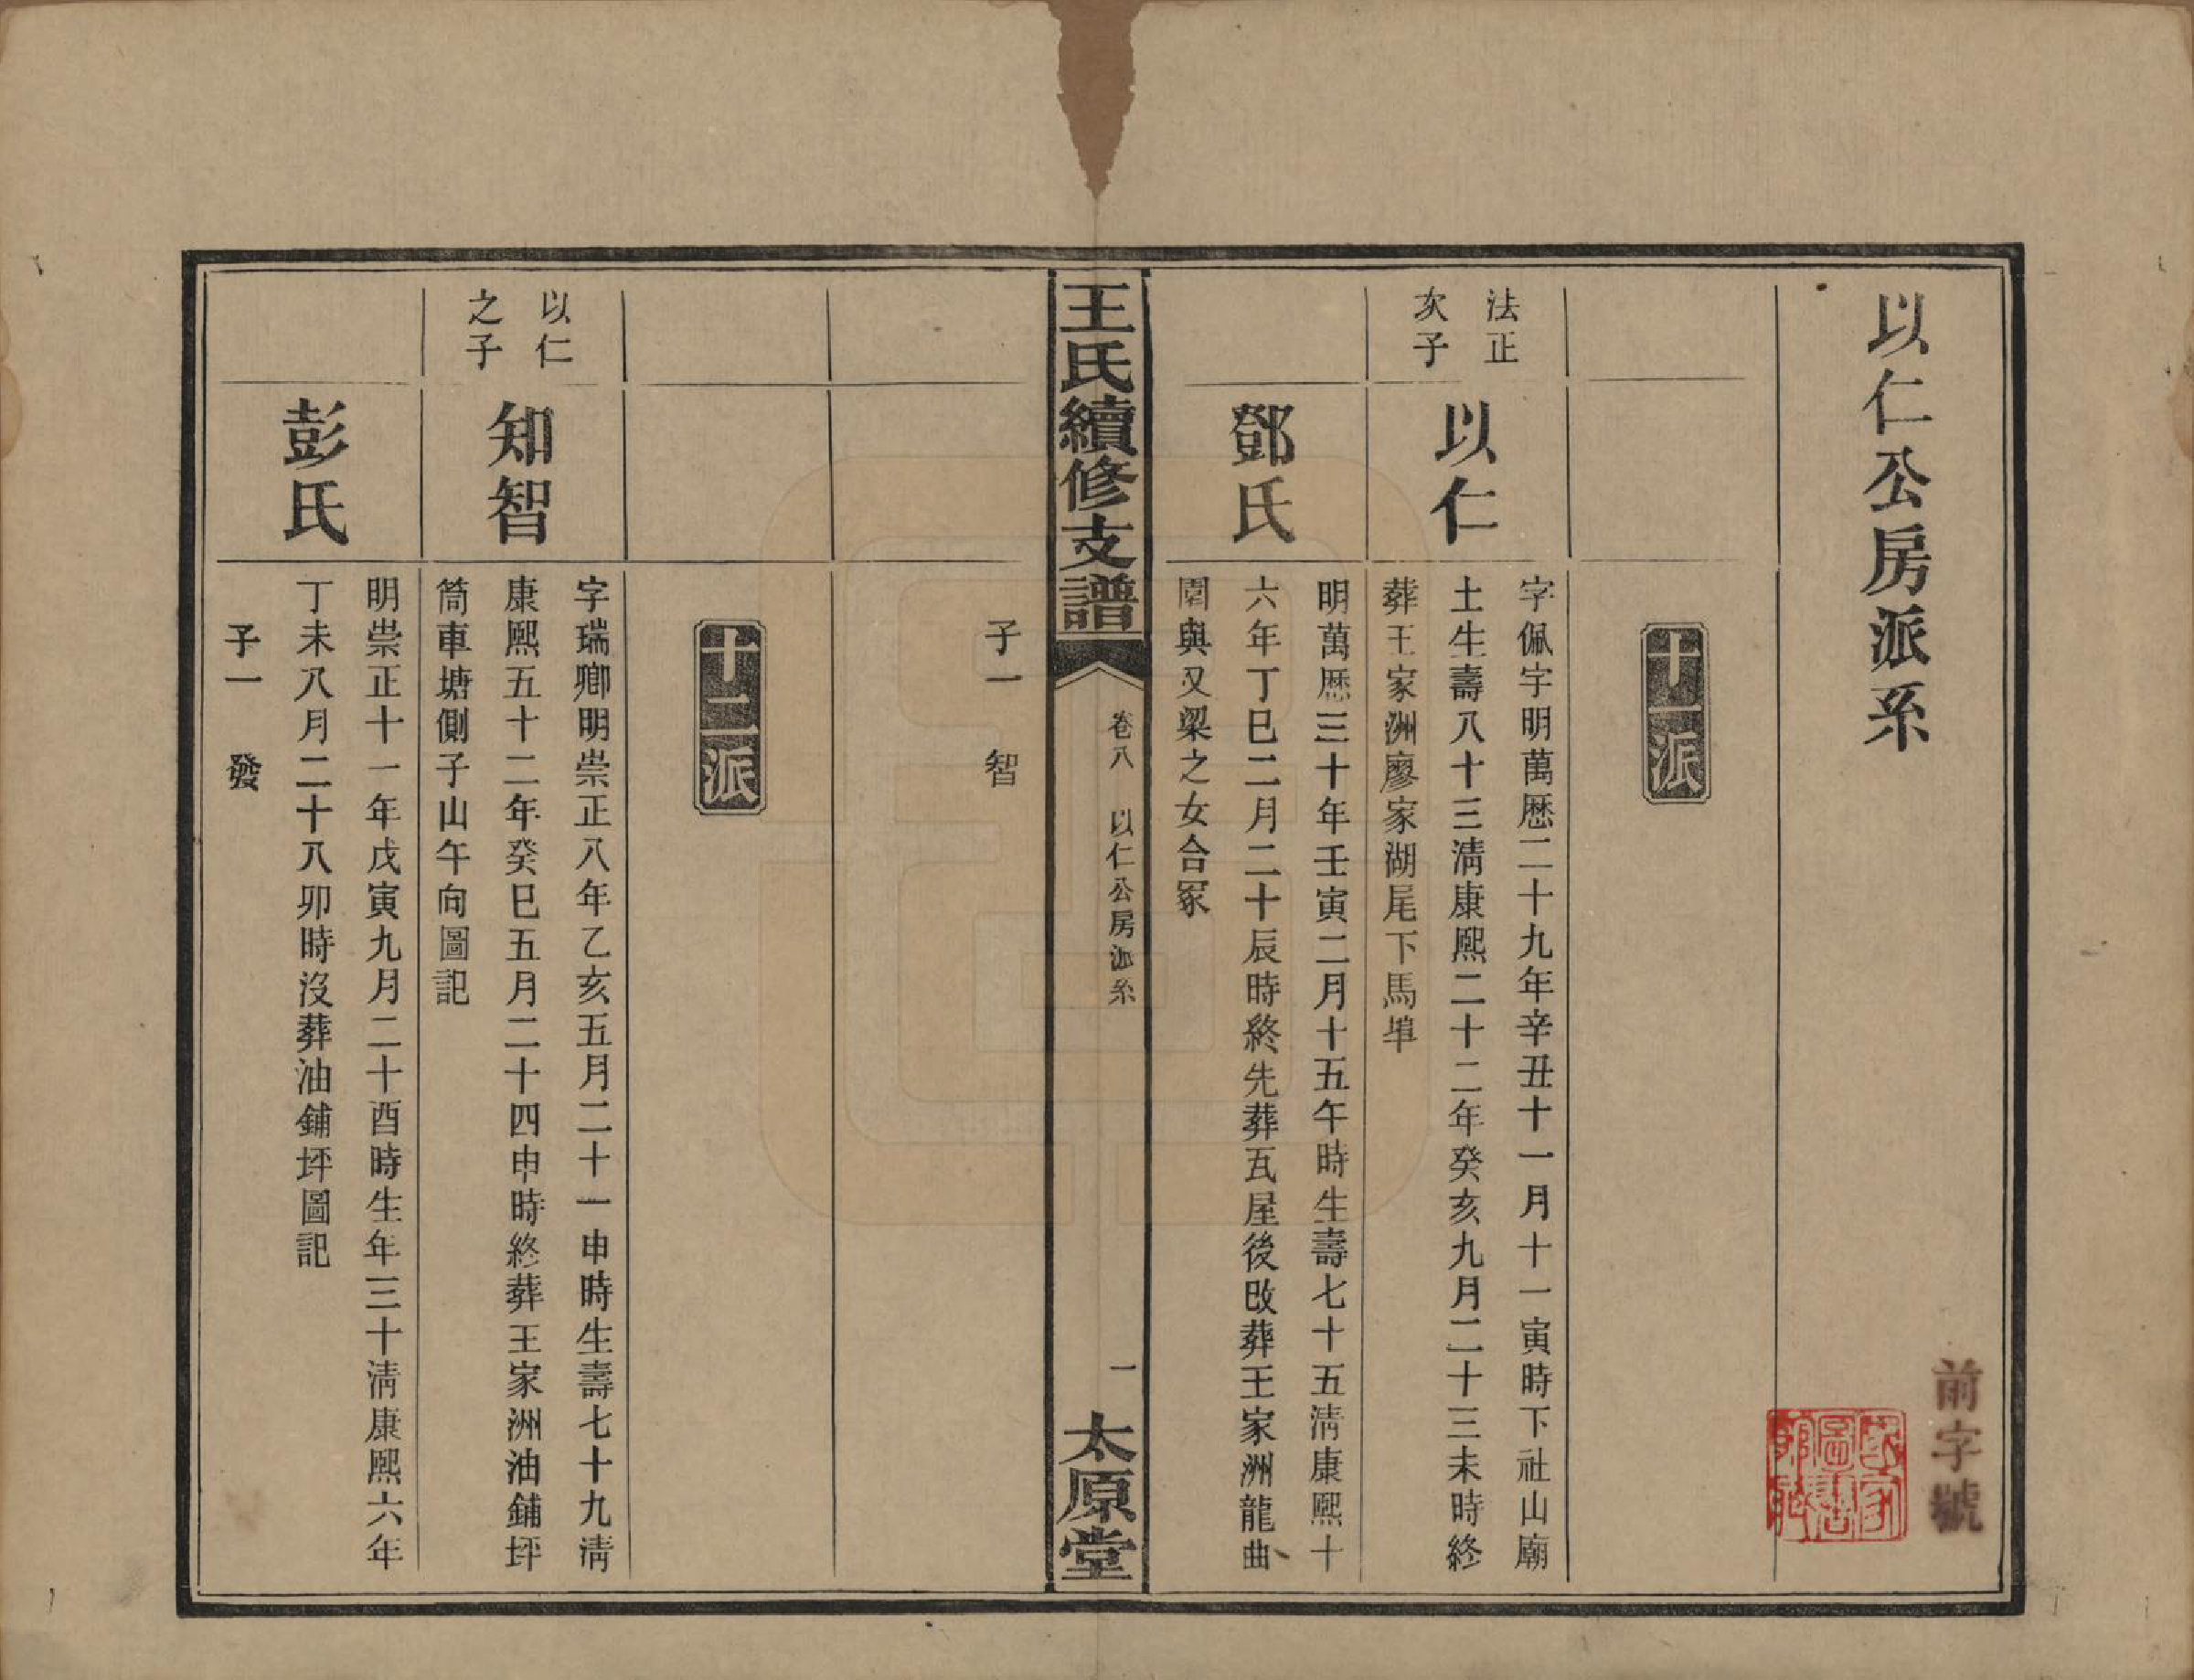 以仁公房派系
前字號
十一派
法正
次子
以仁
字佩宇明萬歷二十九年辛丑十一月十一寅時下社山廟
土生壽八十三淸康熙二十二年癸亥九月二十三未時終
葬王家洲廖家湖尾下馬埠
鄧氏
明萬歷三十年壬寅二月十五午時生壽七十五淸康熙十
六年丁巳二月二十辰時終先葬瓦屋後改葬王家洲龍曲
園與又梁之女合冢
王氏續修支譜
卷八 以仁公房派系
一
太原堂
子一 智
十二派
以仁
之子
知智
字瑞卿明崇正八年乙亥五月二十一申時生壽七十九淸
康熙五十二年癸巳五月二十四申時終葬王家洲油鋪坪
筒車塘側子山午向圖記
彭氏
明崇正十一年戊寅九月二十酉時生年三十淸康熙六年
丁未八月二十八卯時沒葬油鋪坪圖記
子一 發